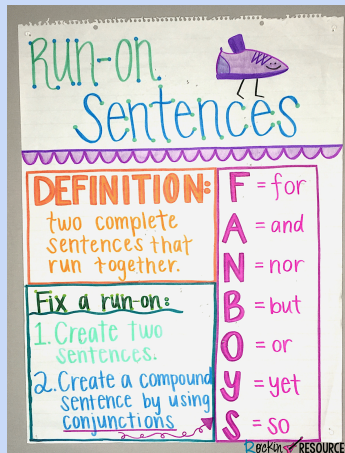 Run-on
Sentences
DEFINITION:
two complete
sentences that
run together.
Fix a run-on:
1. Create two
sentences.
2. Create a compound
sentence by using
conjunctions
F = for
A = and
N = nor
B = but
O = or
Y = yet
S = so
Rockin RESOURCE